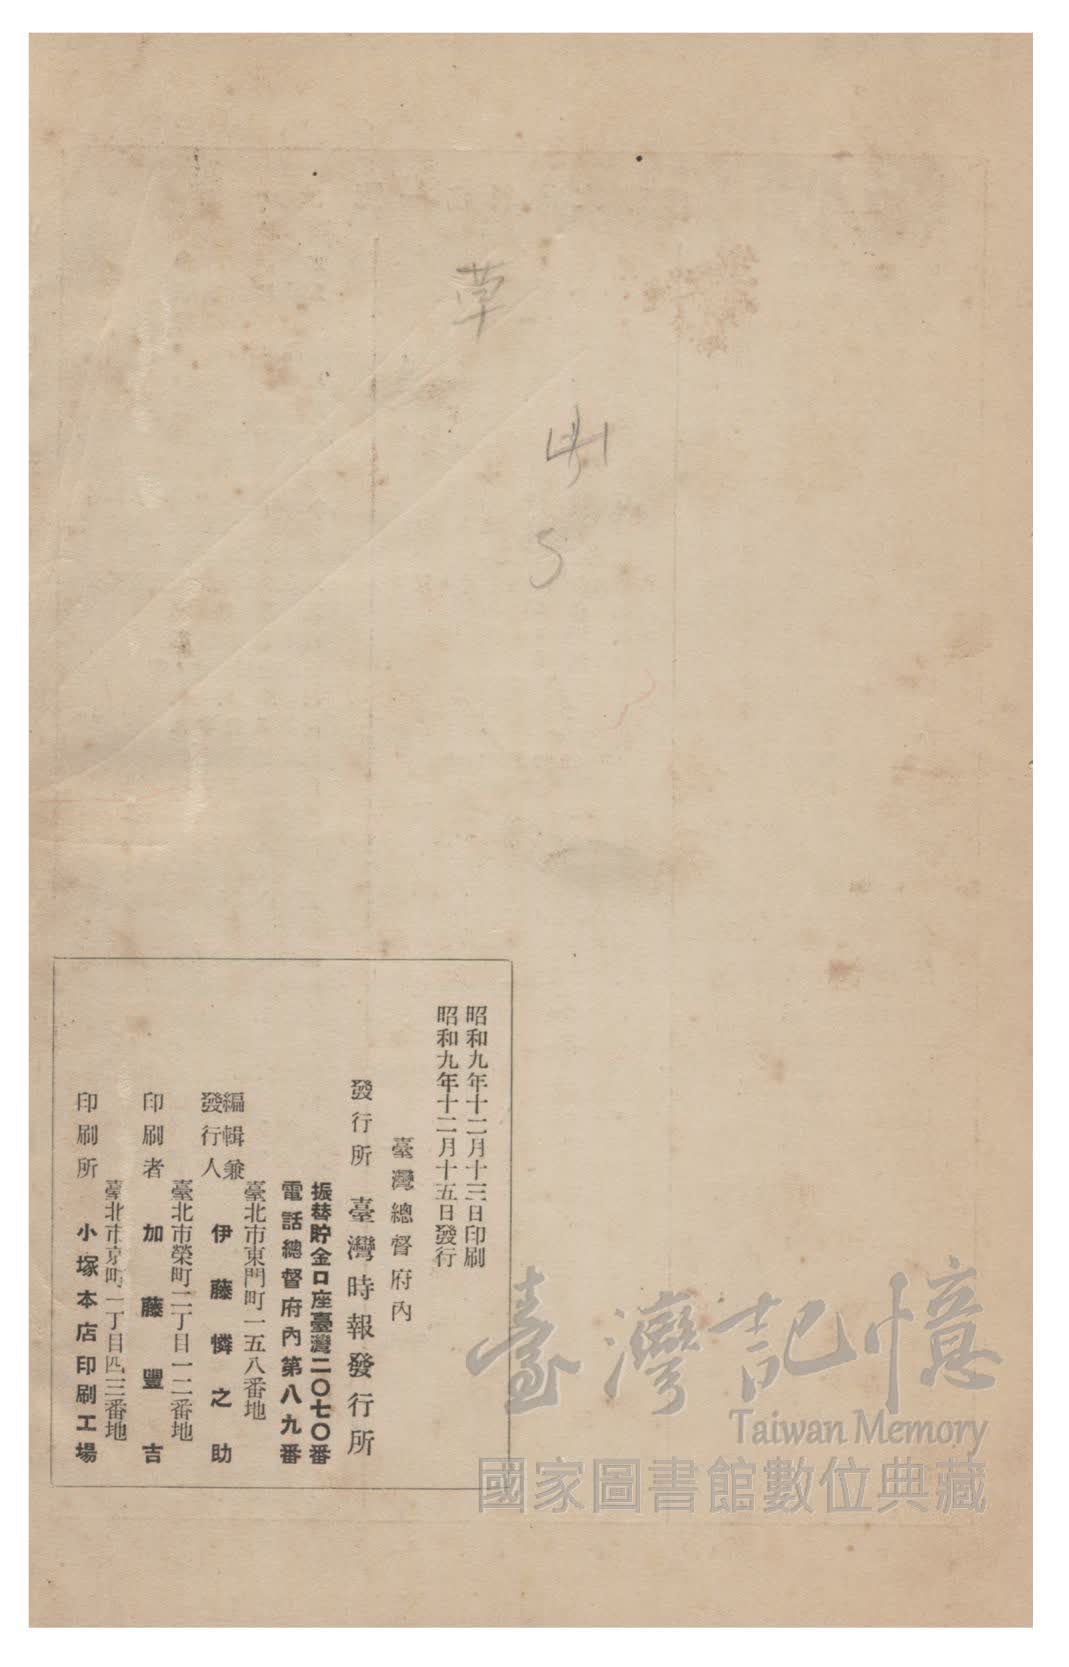 草
山
5
昭和九年十二月十三日印刷
昭和九年十二月十五日發行
臺灣總督府內
發行所 臺灣時報發行所
振替貯金口座臺灣二〇七〇番
電話總督府內第八九番
臺北市東門町一五八番地
編輯兼
發行人 伊藤憐之助
臺北市榮町二丁目一二番地
印刷者 加藤豐吉
臺北市京町一丁目四三番地
印刷所 小塚本店印刷工場
臺灣記憶
Taiwan Memory
國家圖書館數位典藏